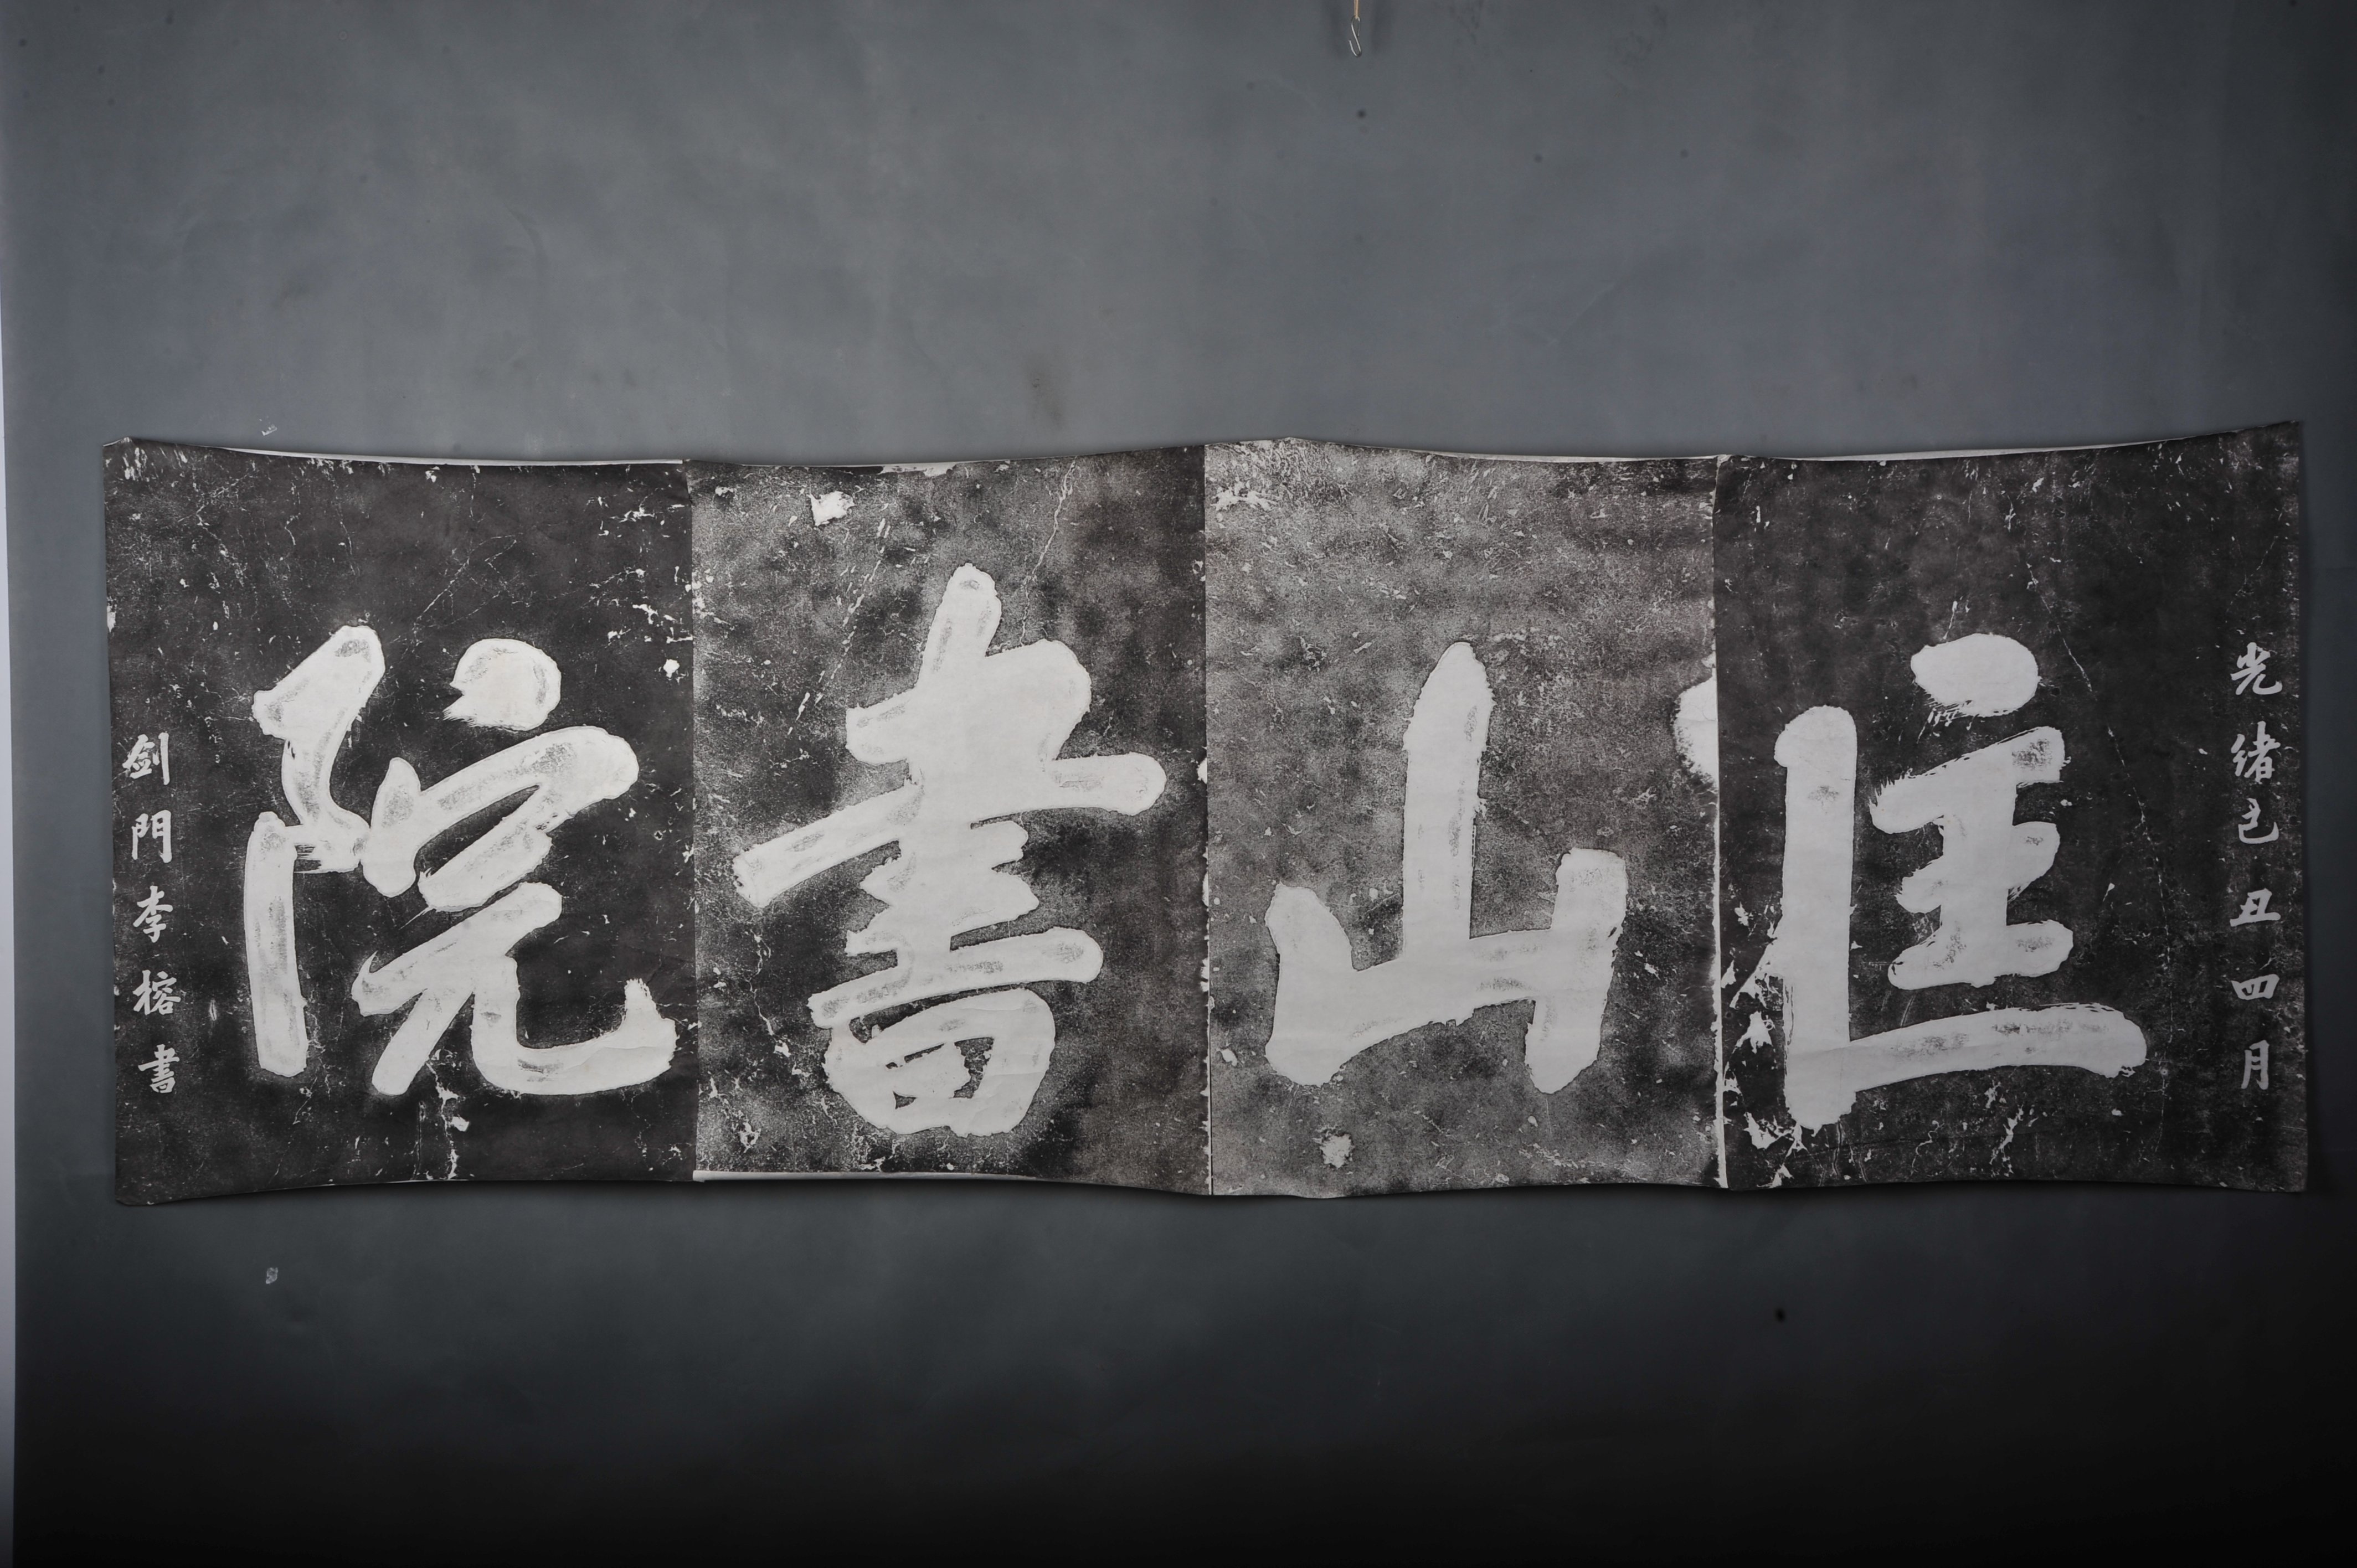 光緒己丑四月
匡山書院
剑門李榕書